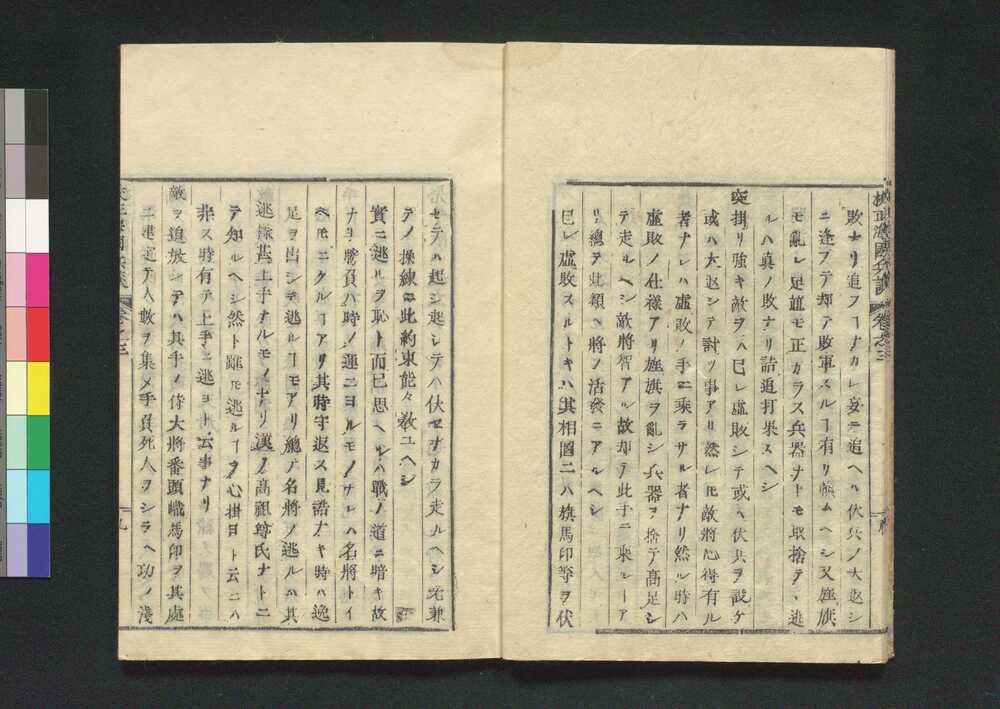 敗ナリ追フヿナカレ妄ニ追ヘハ伏兵ノ大返シ
ニ逢フテ却テ敗軍スルヿ有リ慎ムヘシ又旌旗
モ亂レ足並モ正カラス兵器ナトモ取捨テヽ逃
ルハ真ノ敗ナリ詰追打果スヘシ
突掛リ強キ敵ヲハ已レ虚敗シテ或ハ伏兵ヲ設ケ
或ハ大返シテ討ツ事アリ然レ𪜈敵將心得有ル
者ナレハ虚敗ノ手ニ乘ラサル者ナリ然ル時ハ
虚敗ノ仕様アリ旌旗ヲ亂シ兵器ヲ捨テ髙足シ
テ走ルヘシ敵將智アル故却テ此手ニ乘ルヿア
リ總テ此類ハ將ノ活發ニアルヘシ
已レ虚敗スルトキハ其相圖ニハ旗馬印等ヲ伏
セテハ起シ起シテハ伏セナカラ走ルヘシ兼
テノ操練ニ此約束能々教ユヘシ
實ニ逃ルヲ恥ト而已思ヘルハ戰ノ道ニ暗キ故
ナリ勝負ハ時ノ運ニヨルモノナレハ名將トイ
ヘ𪜈ニクルヿアリ其時守返ス見詰ナキ時ハ逸
足ヲ出シテ逃ルヿモアリ總テ名將ノ逃ルハ其
逃様甚上手ナルモノナリ漢ノ髙祖尊氏ナトニ
テ知ルヘシ然ト雖𪜈逃ルヿヲ心掛ヨト云ニハ
非ス時有テ上手ニ逃ヨト云事ナリ
敵ヲ追放シテハ其手ノ侍大將番頭幟馬印ヲ其處
ニ建定テ人數ヲ集メ手負死人ヲシラヘ功ノ淺